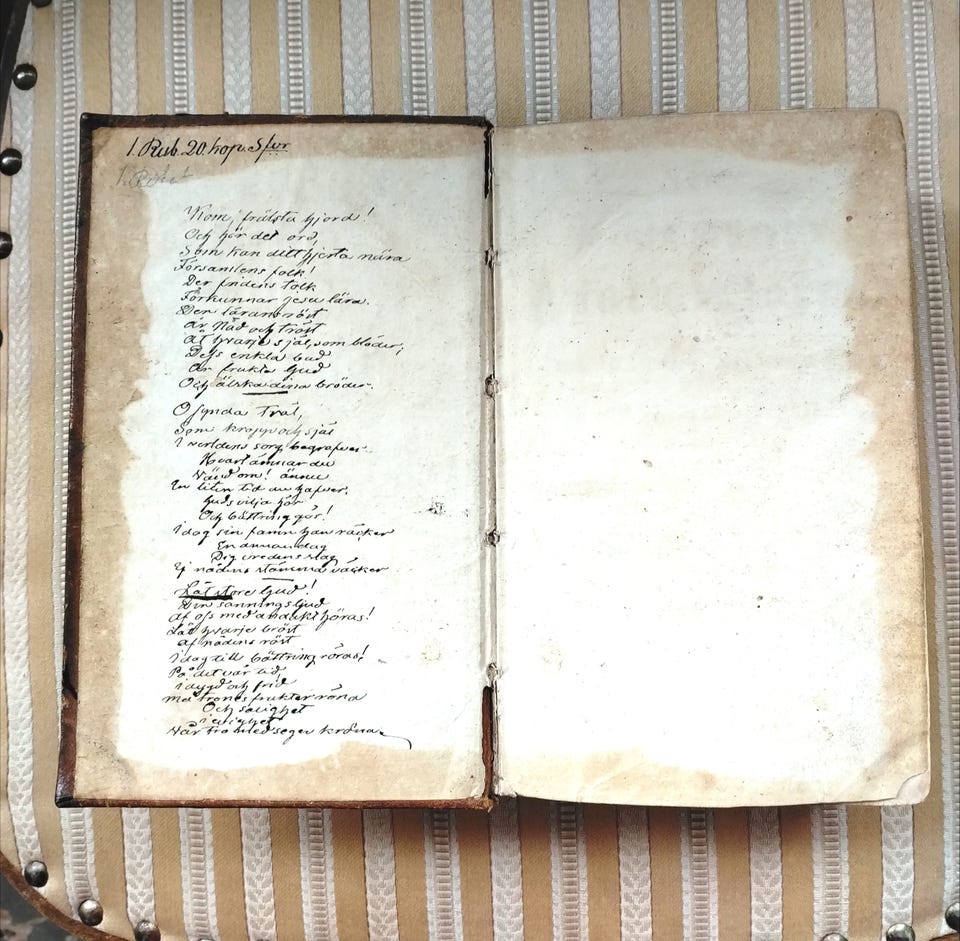 1. Rub. 20. kop. Sfvr
Kom, frälsta hjord!
Och hör det ord,
Som kan ditt hjerta nära
Församlens folk!
Der fridens tolk
Förkunnar Jesu lära.
Den lärans röst
är Nåd och tröst
åt hvarje själ, som blöder;
Defs enkla bud
är frukta Gud
Och älska dina bröder.
O synda Träl,
Som kropp och själ
I verldens sorg begrafver
Hvart ämnar du
Vänd om! ännu
En liten tid du hafver.
Guds vilja hör
Och bättring gör!
I dag sin famn han räcker
En annan dag
Dig vredens slag
Ej nådens stämma väcker
Låt store Gud!
Din sannings ljud
af ofs med andakt höras!
Låt hvarje bröst
af nådens röst
I dag till bättring röras!
På det vår tid,
i dygd och frid
må trones frukter röna
Och salighet
i evighet
Vår tro med seger kröna.